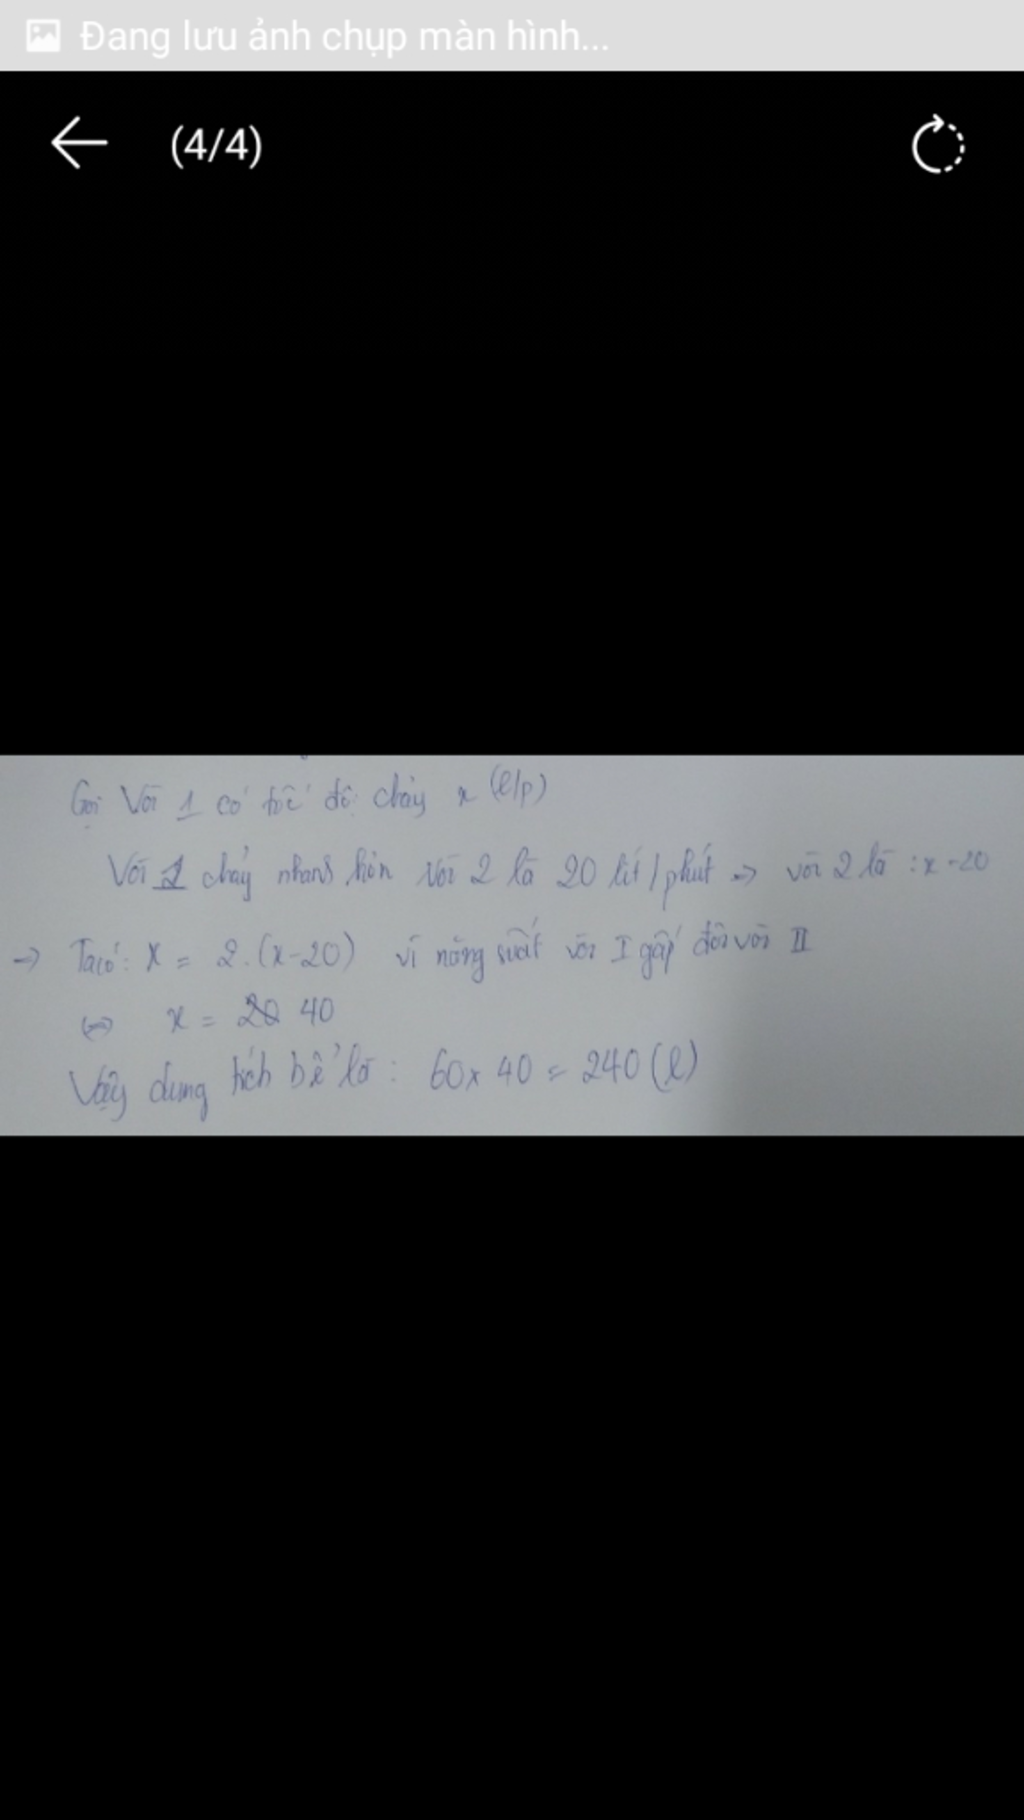 Đang lưu ảnh chụp màn hình...
(4/4)
Gọi Vòi 1 có tốc độ chảy x (l/p)
Vòi 1 chảy nhanh hơn vòi 2 là 20 lít/phút => vòi 2 là : x-20
→ Ta có: x = 2.(x-20) vì năng suất vòi I gấp đôi vòi II
<=> x = 20 40
Vậy dung tích bể là: 60x 40 = 240 (l)